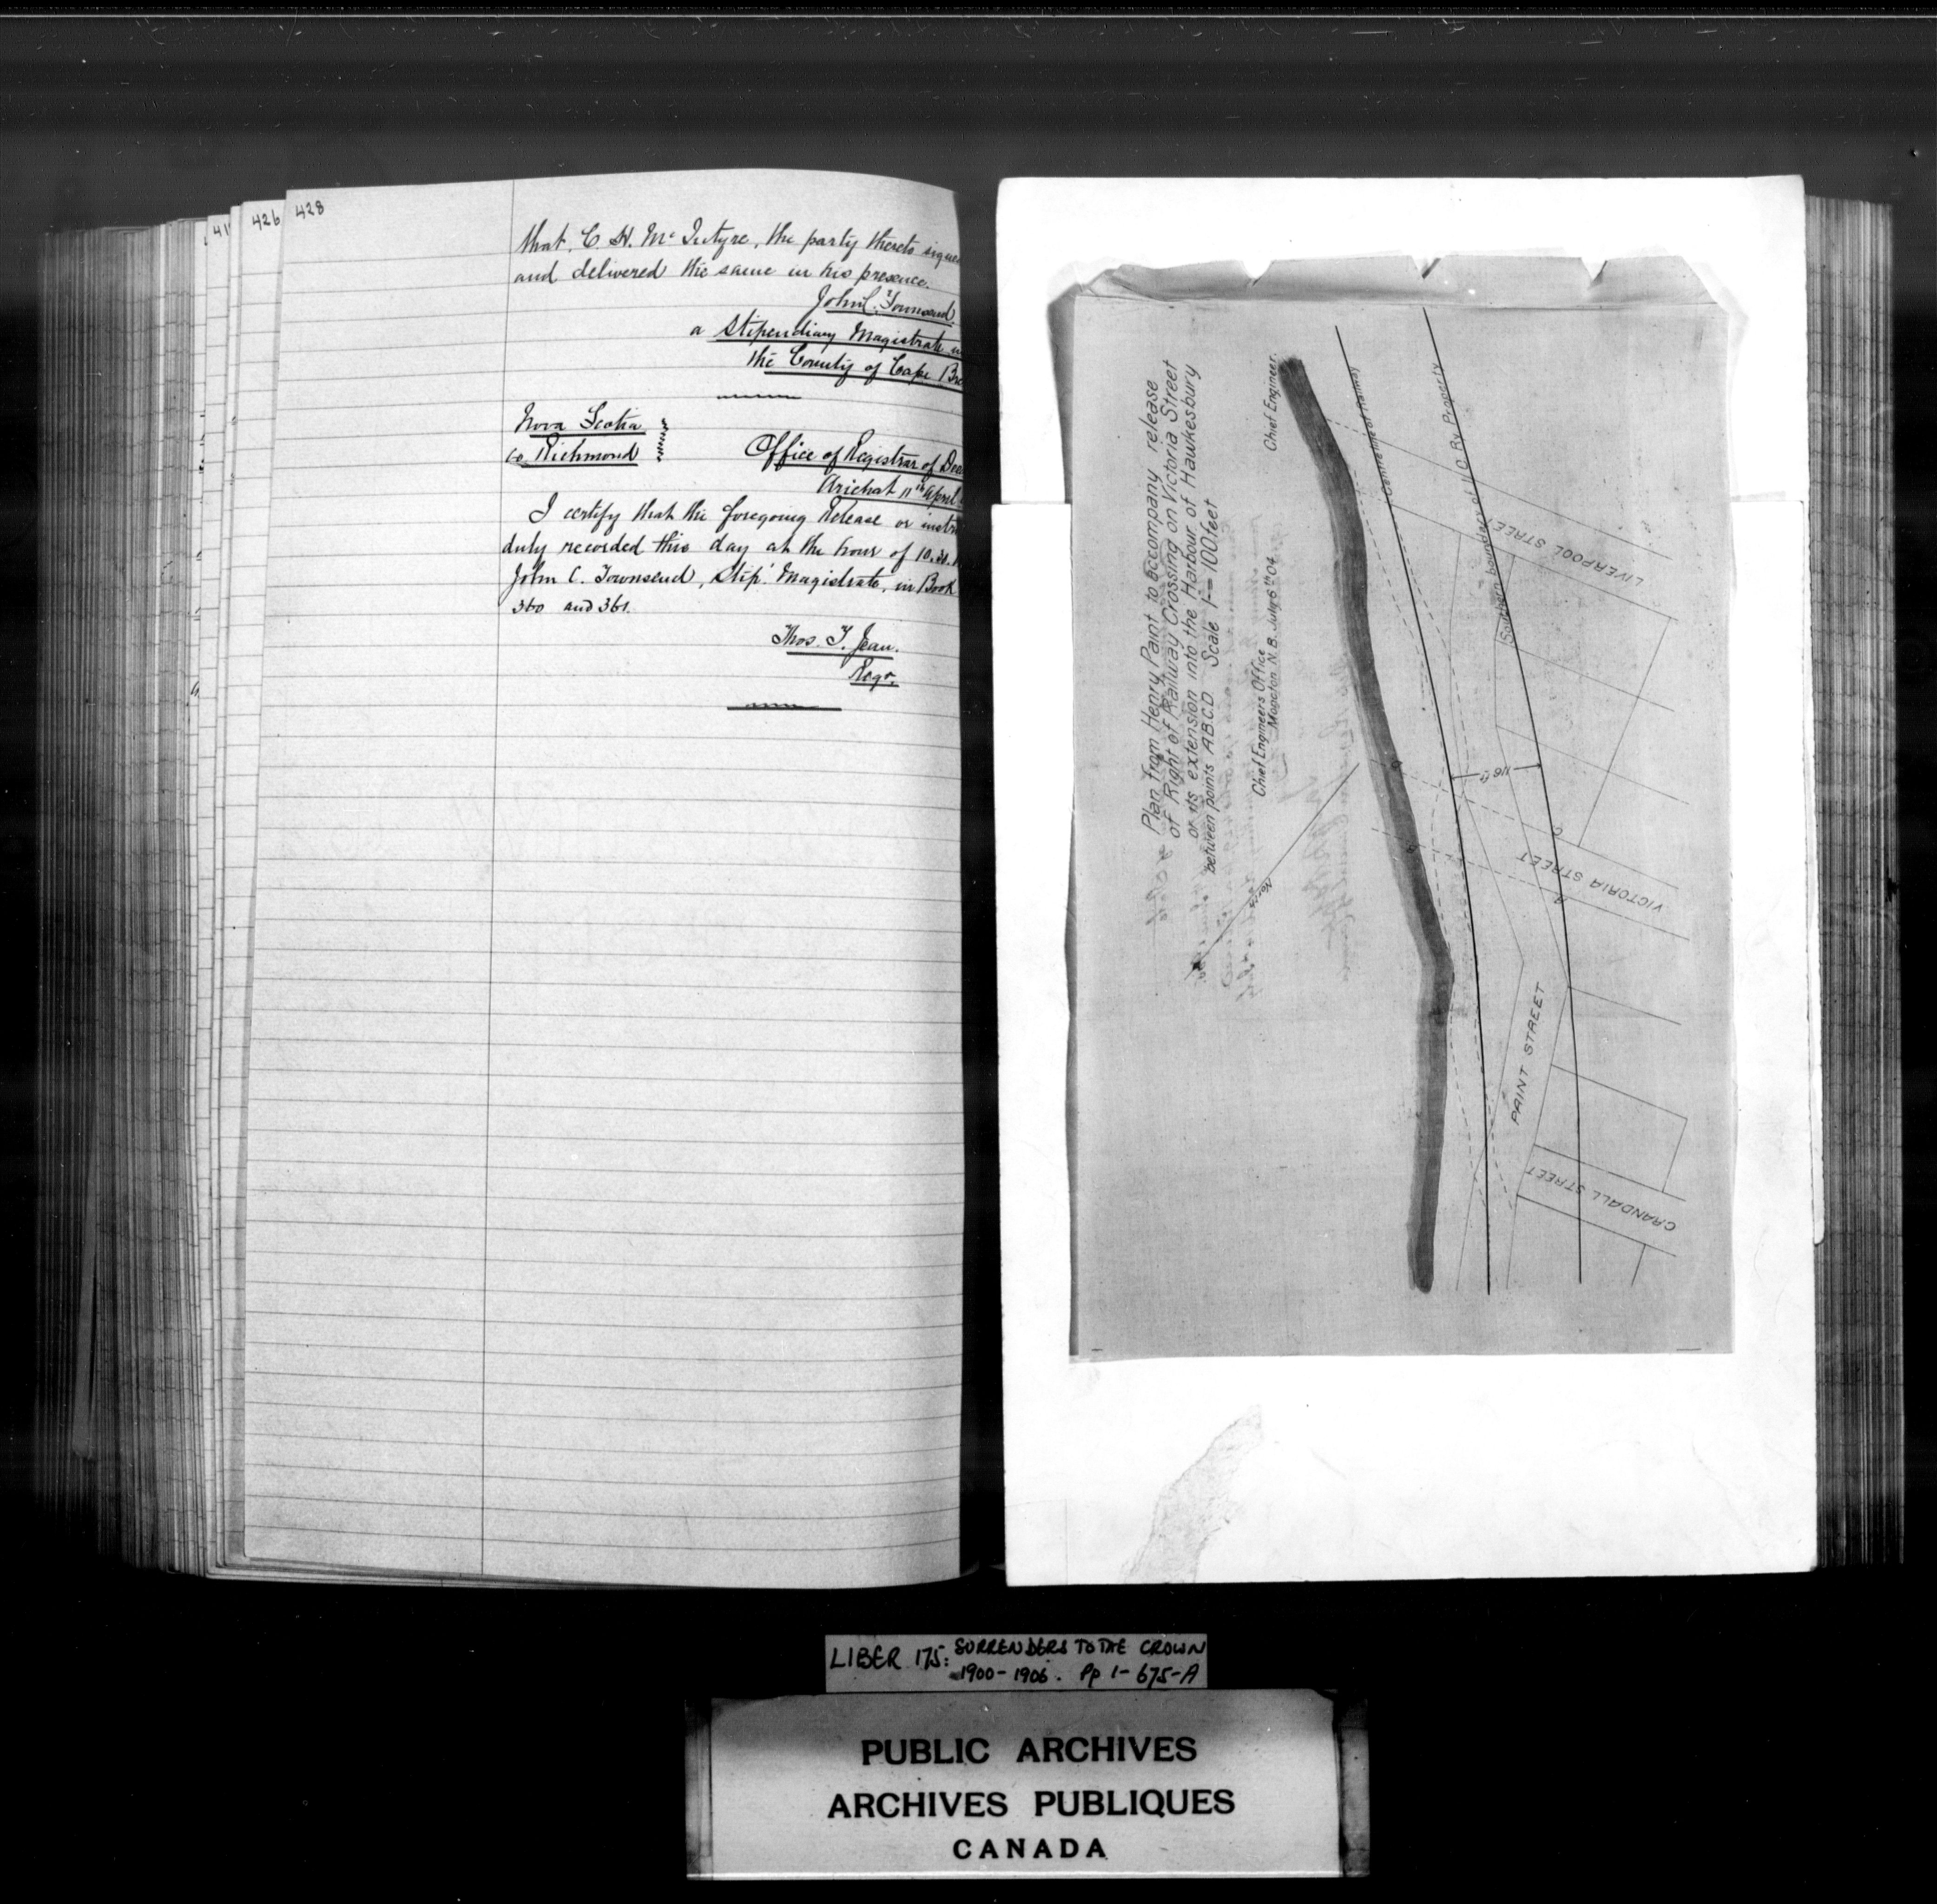 428
426
41
that, C. H. Mc Intyre, the party thereto signed
and delivered the same in his presence.
John C. Townsend.
a Stipendiary Magistrate in
the County of Cape Bre
Nova Scotia
Co. Richmond
Office of Registrar of Dee
Arichat 11th April
I certify that the foregoing Release or instru
duly recorded this day at the hour of 10.30
John C. Townsend, Stip. Magistrate, in Book
360 and 361.
Thos. T. Jean.
Regr.
Plan from Henry Paint to accompany release
of Right of Railway Crossing on Victoria Street
or its extension into the Harbour of Hawkesbury
between points A.B.C.D. Scale 1" = 100 feet
Chief Engineers Office
Moncton N.B. July 6th 04
Chief Engineer.
North
Centre line of Railway
Southern boundary of I.C. Ry. Property
LIVERPOOL STREET
116 ft
VICTORIA STREET
PAINT STREET
CRANDALL STREET
LIBER 175: SURRENDERS TO THE CROWN
1900-1906. Pp 1-675-A
PUBLIC ARCHIVES
ARCHIVES PUBLIQUES
CANADA